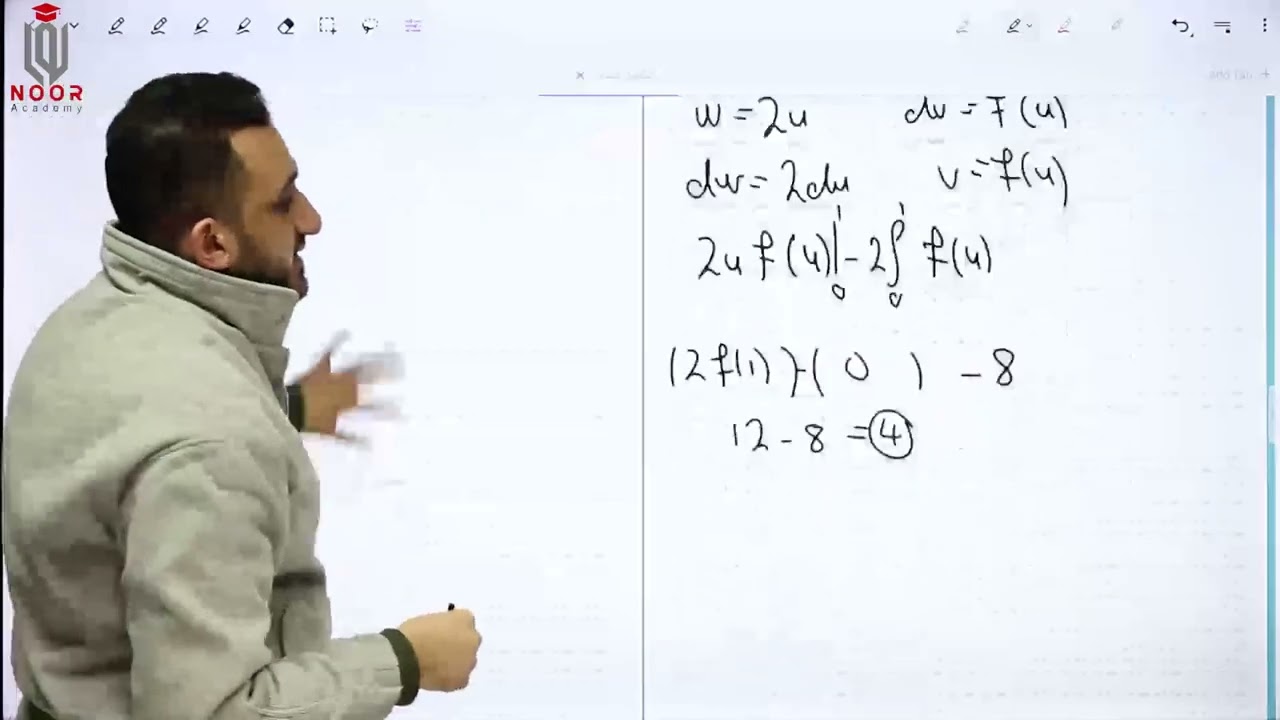 NOOR
Academy
w = 2u dv = f(u)
dw = 2du v = f(u)
2u f(u)|₀¹ - 2∫₀¹ f(u)
(2f(1)) - ( 0 ) - 8
12 - 8 = 4